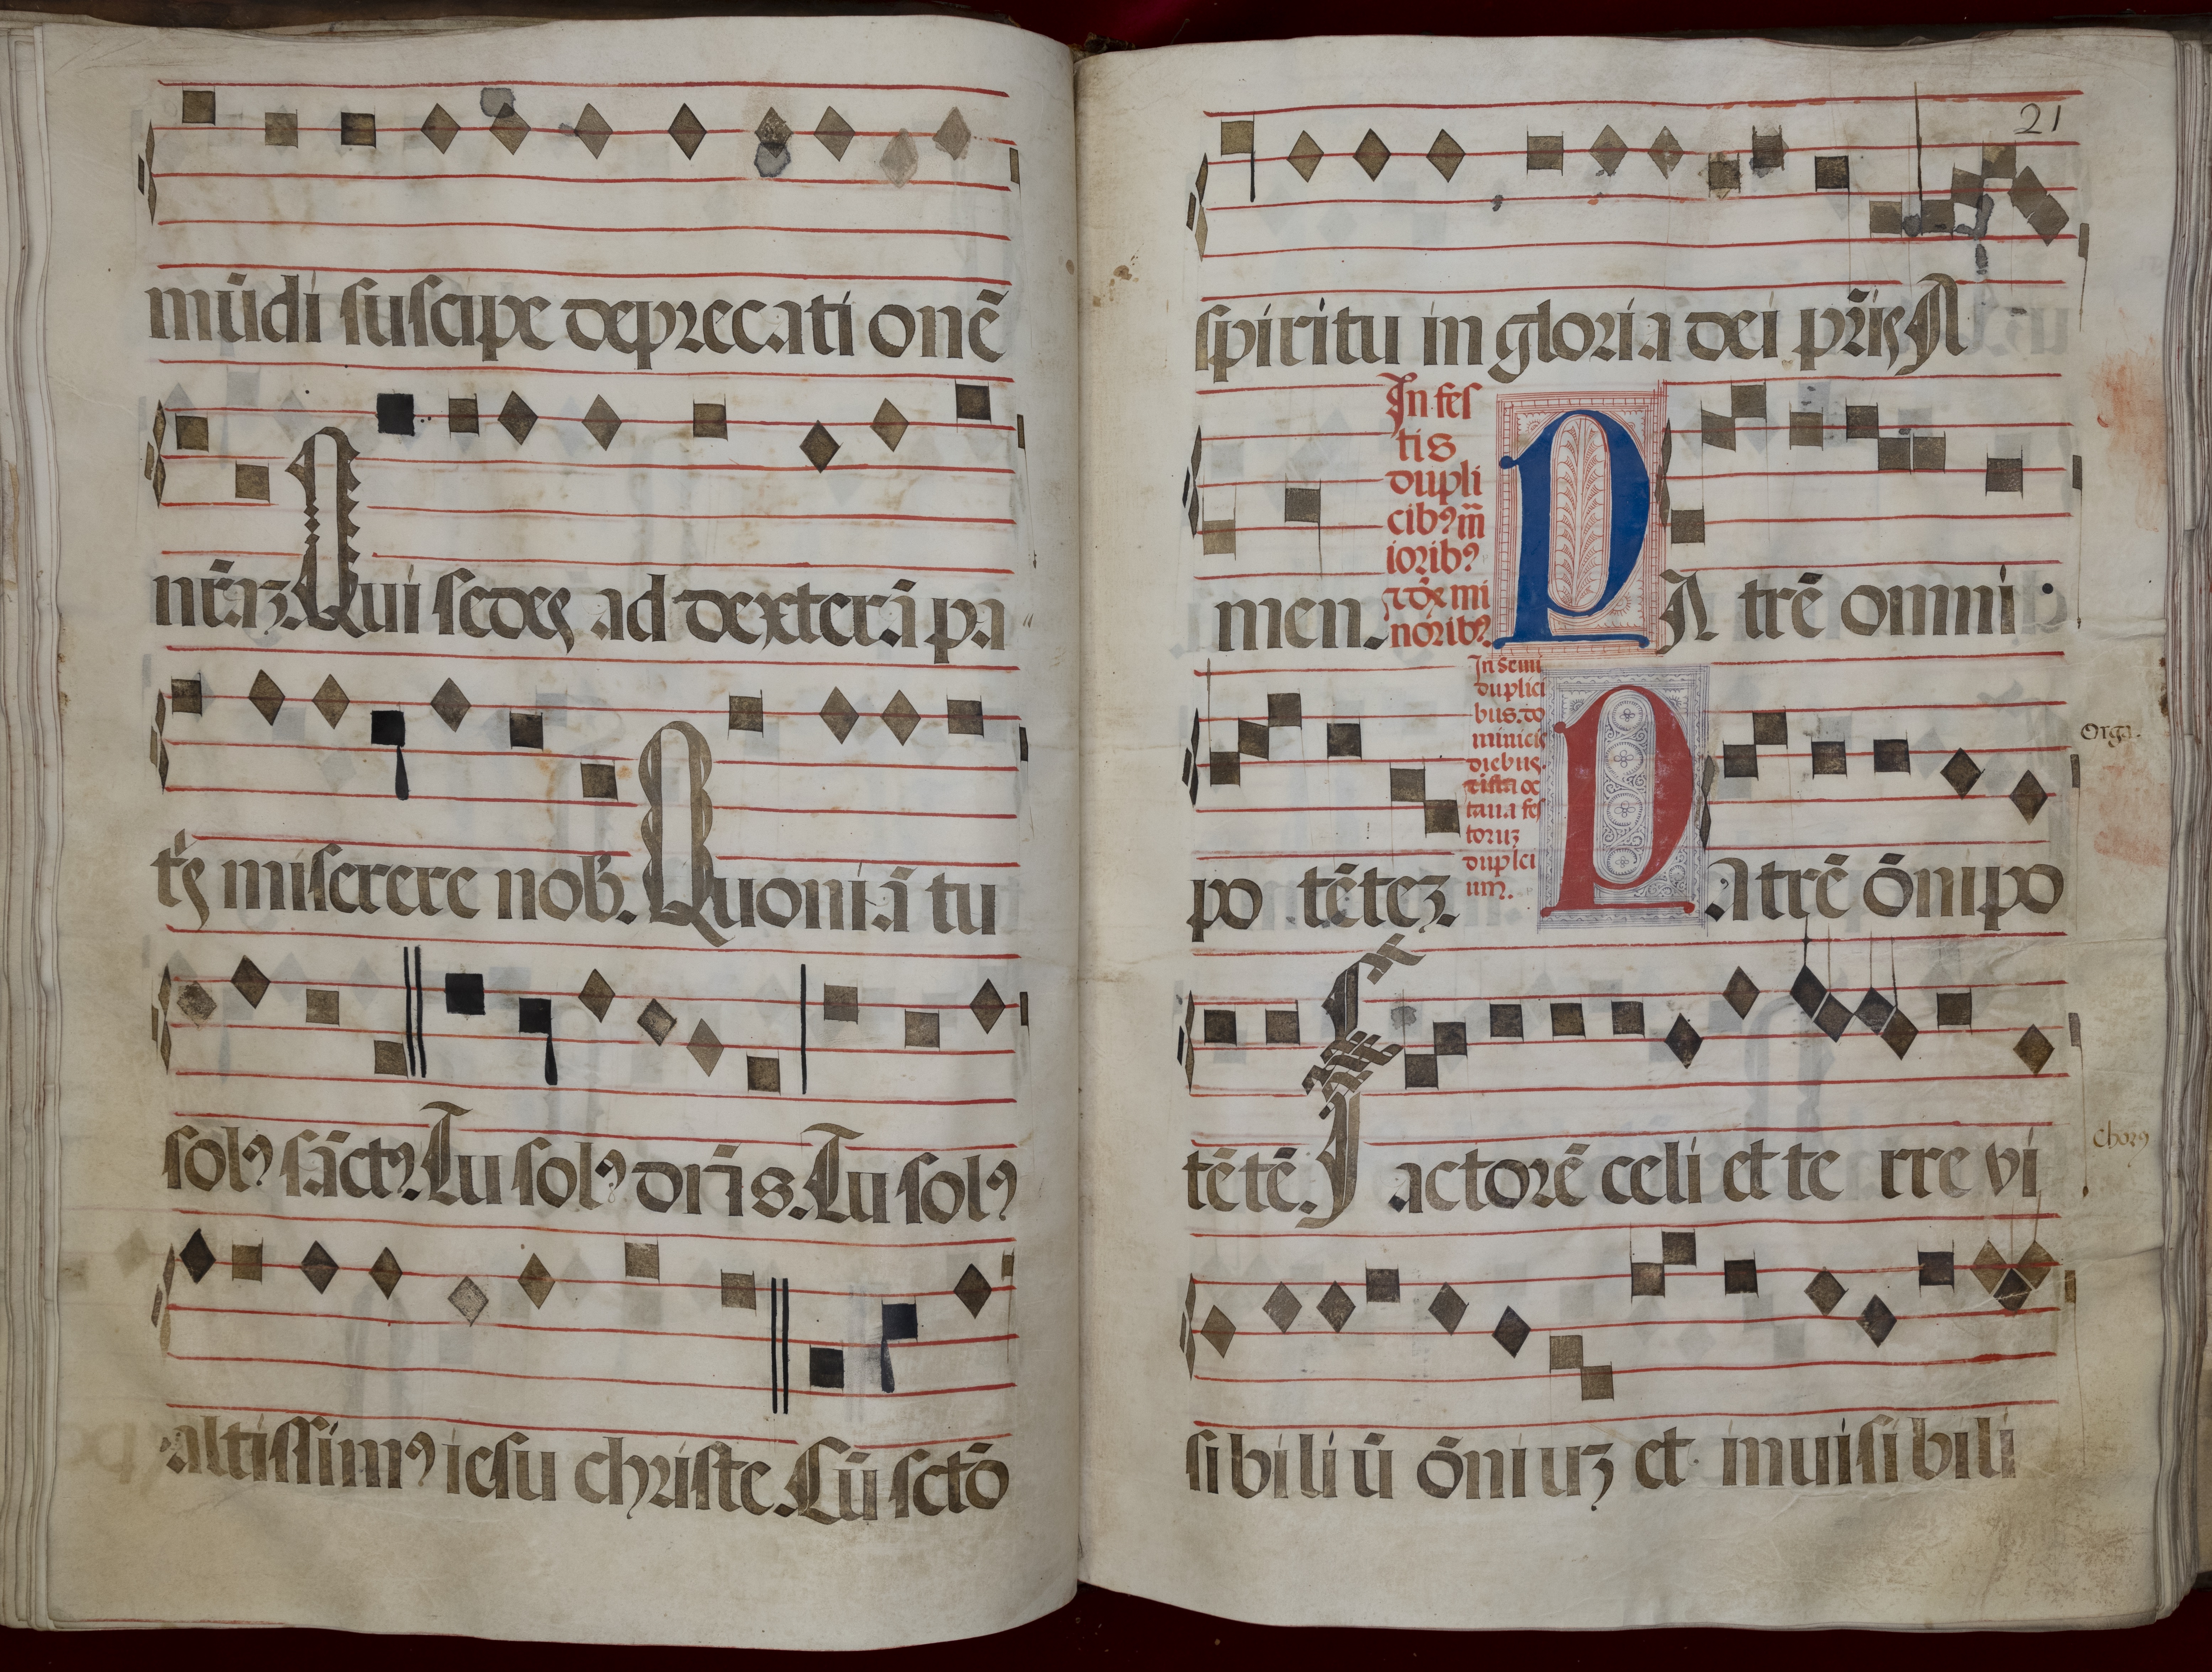 mūdi suscipe deprecati onē
nr̄aʒ. Qui sedes ad dexterā pa
tˢ miserere nob̄. Quoniā tu
solꝰ sāctꝰ. Tu solꝰ dn̄s. Tu solꝰ
altissimꝰ iesu christe. Cū sctō
21
spiritu in gloria dei pr̄is A
In fes
tis
dupli
cibꝰ m̄
ioribꝰ
noribꝰ.
men. P A trē omni
In semi
duplici
bus. do
minicis
diebus.
taua fes
toruʒ
duplici
um.
Orga.
po tēteʒ. P Atrē ōnipo
tētē. Factorē celi et te rre vi
Chorꝰ
si bi li ū ōni uʒ et inuisi bili